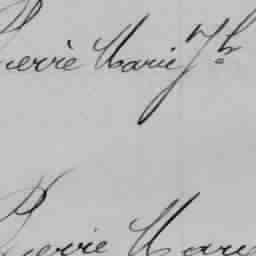 Pierre Marie Jh
Pierre Marie